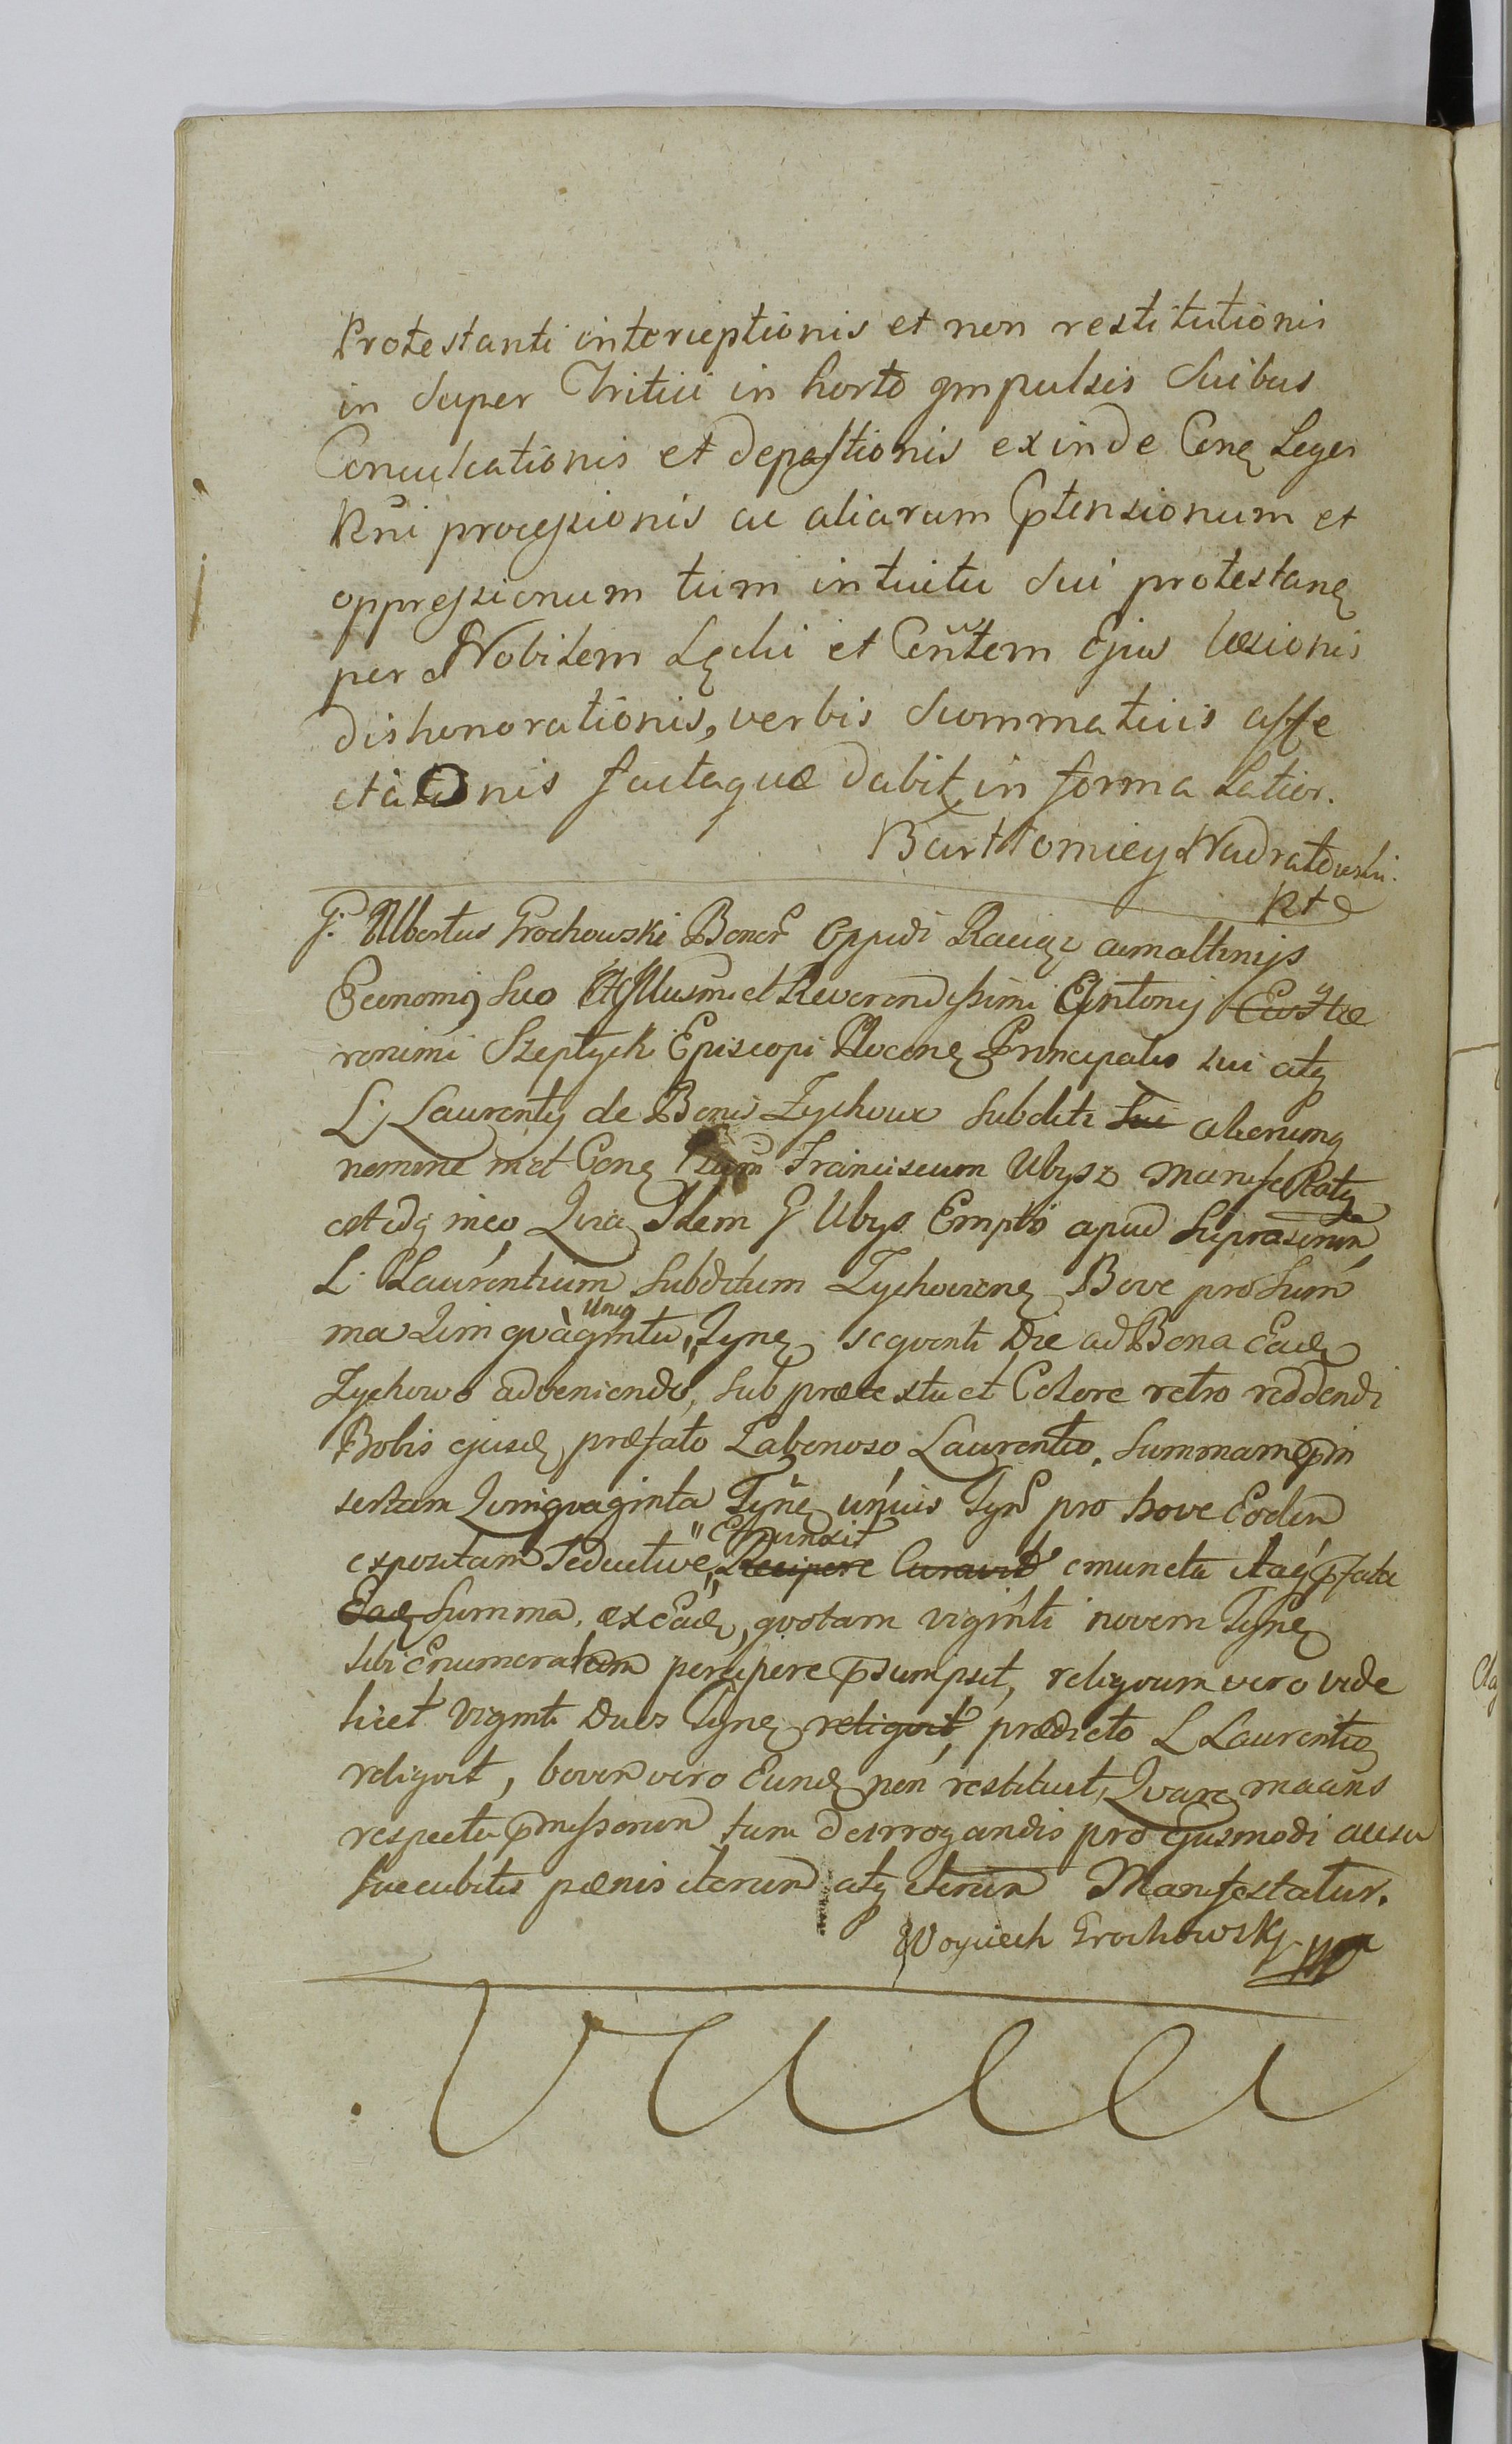 Protestanti interceptionis et non restitutionis
in super Tritici in horto gmpulsis Suibus
Conculcationis et depastionis exinde Cenę Leges
Rni processionis ac aliarum Cptensionum et
oppressionum tum intuitu Sui protestanę
per Nobilem Lęcki et Cñtem Ejus læsionis
dishonorationis, verbis Summativis affe
ctationis factaque dabit in forma Latior.
Barttomiey Nadratowski.
G. Albertus Grochowski Bonor Oppidi Raciąz
Economg Suo Et Illusmi et Reverendissimi Antonij
ronimi Szeptych Episcopi Plocenę Principalis sui atq
L. Laurentij de Bonis Zychowo Subditi sui
nomine met Genę Franciscum Ubysz manifestatq
est idq in eo Quia Idem G Ubys Empto apud Suprascrim
L. Laurentium Subditum Zychovienę Bove pro Sum
ma Quinquaginta Uno Tynę sequenti Die ad Bona Eadę
Zychowo adveniendo, Sub prætextu et Colore retro reddendi
Bobis ejusdę præfato Laborioso Laurentio, Summam pin
sertam Quinquaginta Tynę unius Tynf pro bove Eodem
Emunxit
expositam Seductive, Recipere Curavit emuncta itaq pfata
Eadę Summa, ex Eadę, quotam viginti novem Tynę
sibi Enumeratam percipere psumpsit, reliquum vero vide
licet Viginti Duos Tynę reliquit, prædicto L Laurentio
reliquit, bovem vero Eundę non restituit, Quare
respectu pmissorum tum de irrogandis pro Ejusmodi ausu
Succubitis pænis iterum atq iterum Manifestatur.
Woyciech Grochowsky mp